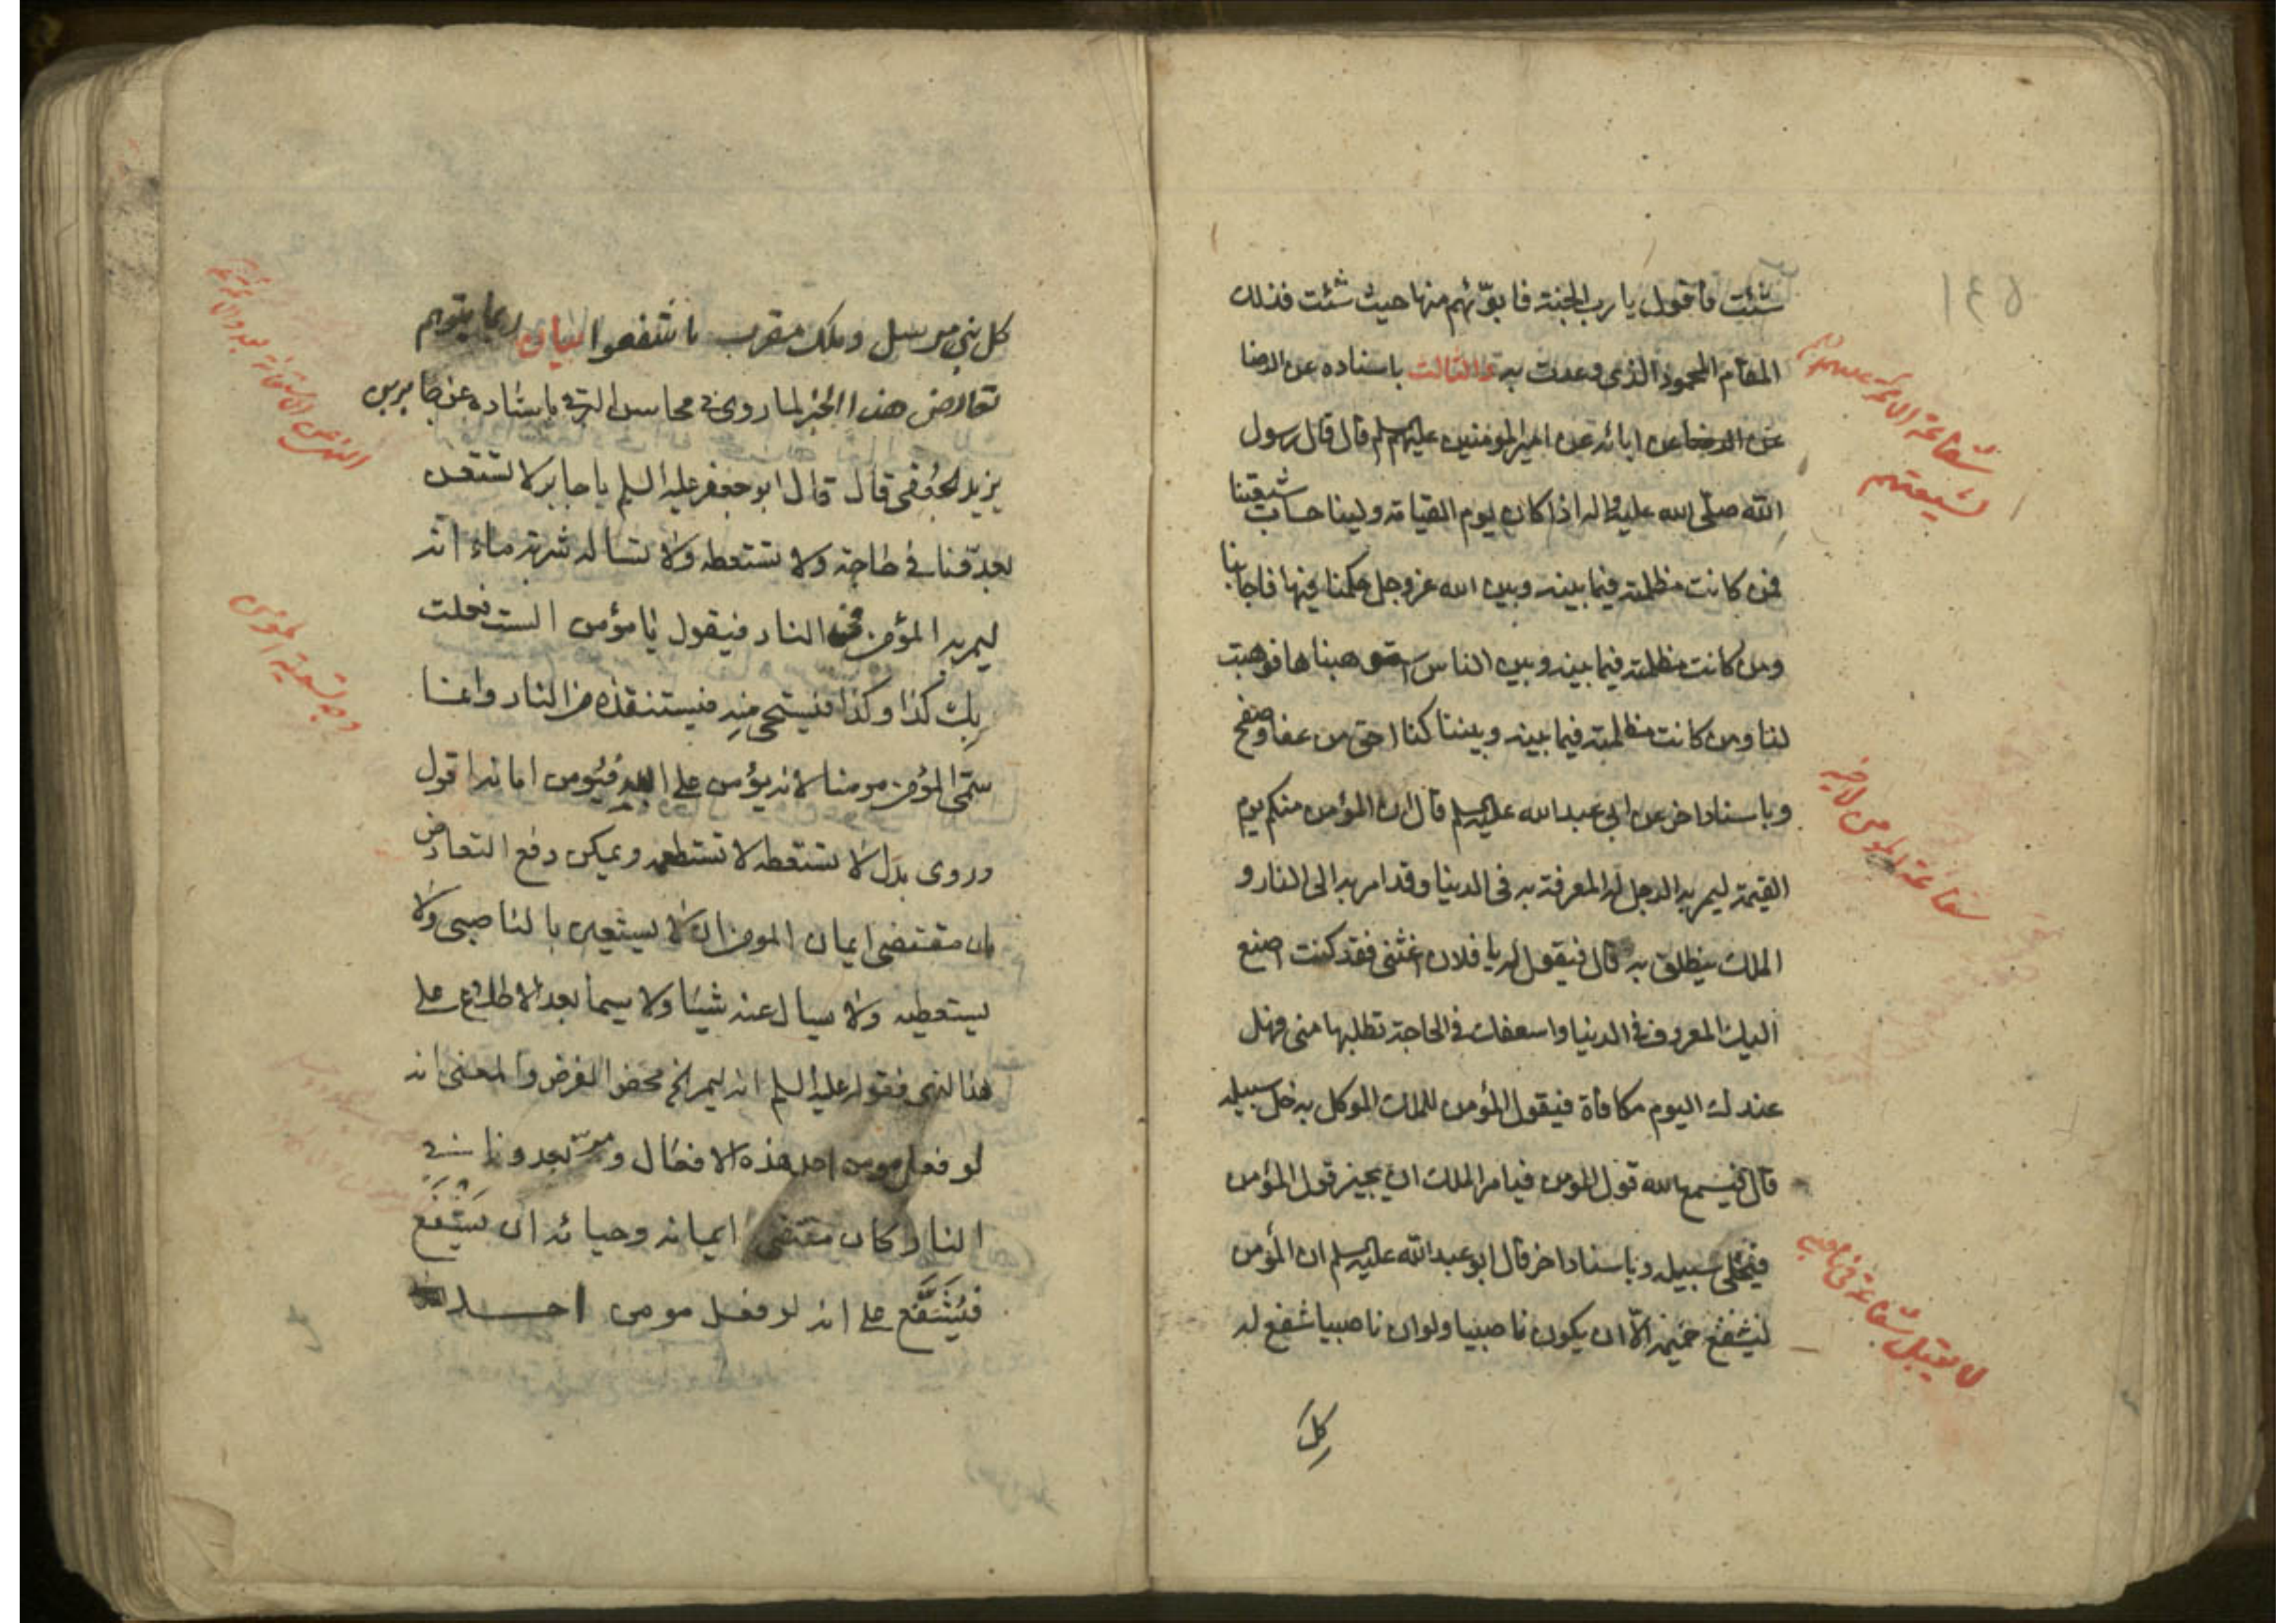 ١٤٥
شئت فأقول يا رب الجنة فابوّئهم منها حيث شئت فذلك
المقام المحمود الذى وعدت به والثالث باسناده عن الرضا
عن الرضا عن ابائه عن امير المؤمنين عليهم السلم قال قال رسول
الله صلى الله عليه واله اذا كان يوم القيامة ولينا حساب شيعتنا
فمن كانت مظلمته فيما بينه وبين الله عز وجل حكمنا فيها فاجابنا
ومن كانت مظلمته فيما بينه وبين الناس استوهبناها فوهبت
لنا ومن كانت مظلمته فيما بينه وبيننا كنا احق من عفا وصفح
وباسناد اخر عن ابى عبد الله عليه السلم قال ان المؤمن منكم يوم
القيمة ليمر به الرجل له المعرفة به فى الدنيا وقد امر به الى النار و
الملك ينطلق به قال فيقول له يا فلان اغثنى فقد كنت اصنع
اليك المعروف فى الدنيا واسعفك فى الحاجة تطلبها منى فهل
عندك اليوم مكافأة فيقول المؤمن للملك الموكل به خل سبيله
قال فيسمع الله قول المؤمن فيامر الملك ان يجيز قول المؤمن
فيخلى سبيله وباسناد اخر قال ابو عبد الله عليه السلم ان المؤمن
ليشفع لحميمه الّا ان يكون ناصبيا ولو ان ناصبيا شفع له
كل
شفاعة الائمة عليهم السلام
لشيعتهم
شفاعة المؤمن لاخيه
لا يقبل شفاعة فى ناصبى
كل نبى مرسل وملك مقرب ما شفعوا بيان ربما يتوهم
تعارض هذا الخبر لما روى فى محاسن البرقى باسناده عن جابر بن
يزيد الجعفى قال قال ابو جعفر عليه السلم يا جابر لا تستعن
بعدوّنا فى حاجة ولا تستعطه ولا تساله شربة ماء انه
ليمر به المؤمن فى النار فيقول يا مؤمن الست فعلت
بك كذا وكذا فيستحى منه فيستنقذه من النار وانما
سمّى المؤمن مومنا لانه يؤمن على الله فيؤمن امانه اقول
وروى بدل لا تستعطه لا تستطعمه ويمكن دفع التعارض
بان مقتضى ايمان المومن ان لا يستعين بالناصبى ولا
يستعطيه ولا يسال عنه شيئا ولا سيما بعد الاطلاع على
هذا النهى فقوله عليه السلم انه ليمر الخ محض الفرض والمعنى انه
لو فعل مومن احد هذه الافعال ومر بعدونا فى
النار كان مقتضى ايمانه وحيائه ان يشفع
فيُشَفَّع على انه لو فعل مومن احد
النهى عن الاستعانة بعدو الائمة
وجه تسمية المؤمن